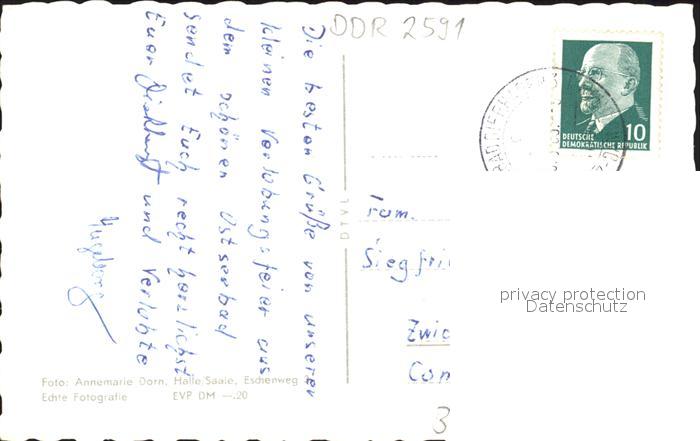 DDR 2591
Die besten Grüße von unserer
kleinen Verlobungsfeier aus
dem schönen Ostseebad
sendet Euch recht herzlichst
Euer und Verlobte
Ingeborg
DEUTSCHE
DEMOKRATISCHE REPUBLIK
10
Fam.
Siegfri
Zwic
privacy protection
Datenschutz
Foto: Annemarie Dorn, Halle/Saale, Eschenweg
Echte Fotografie EVP DM —.20
3